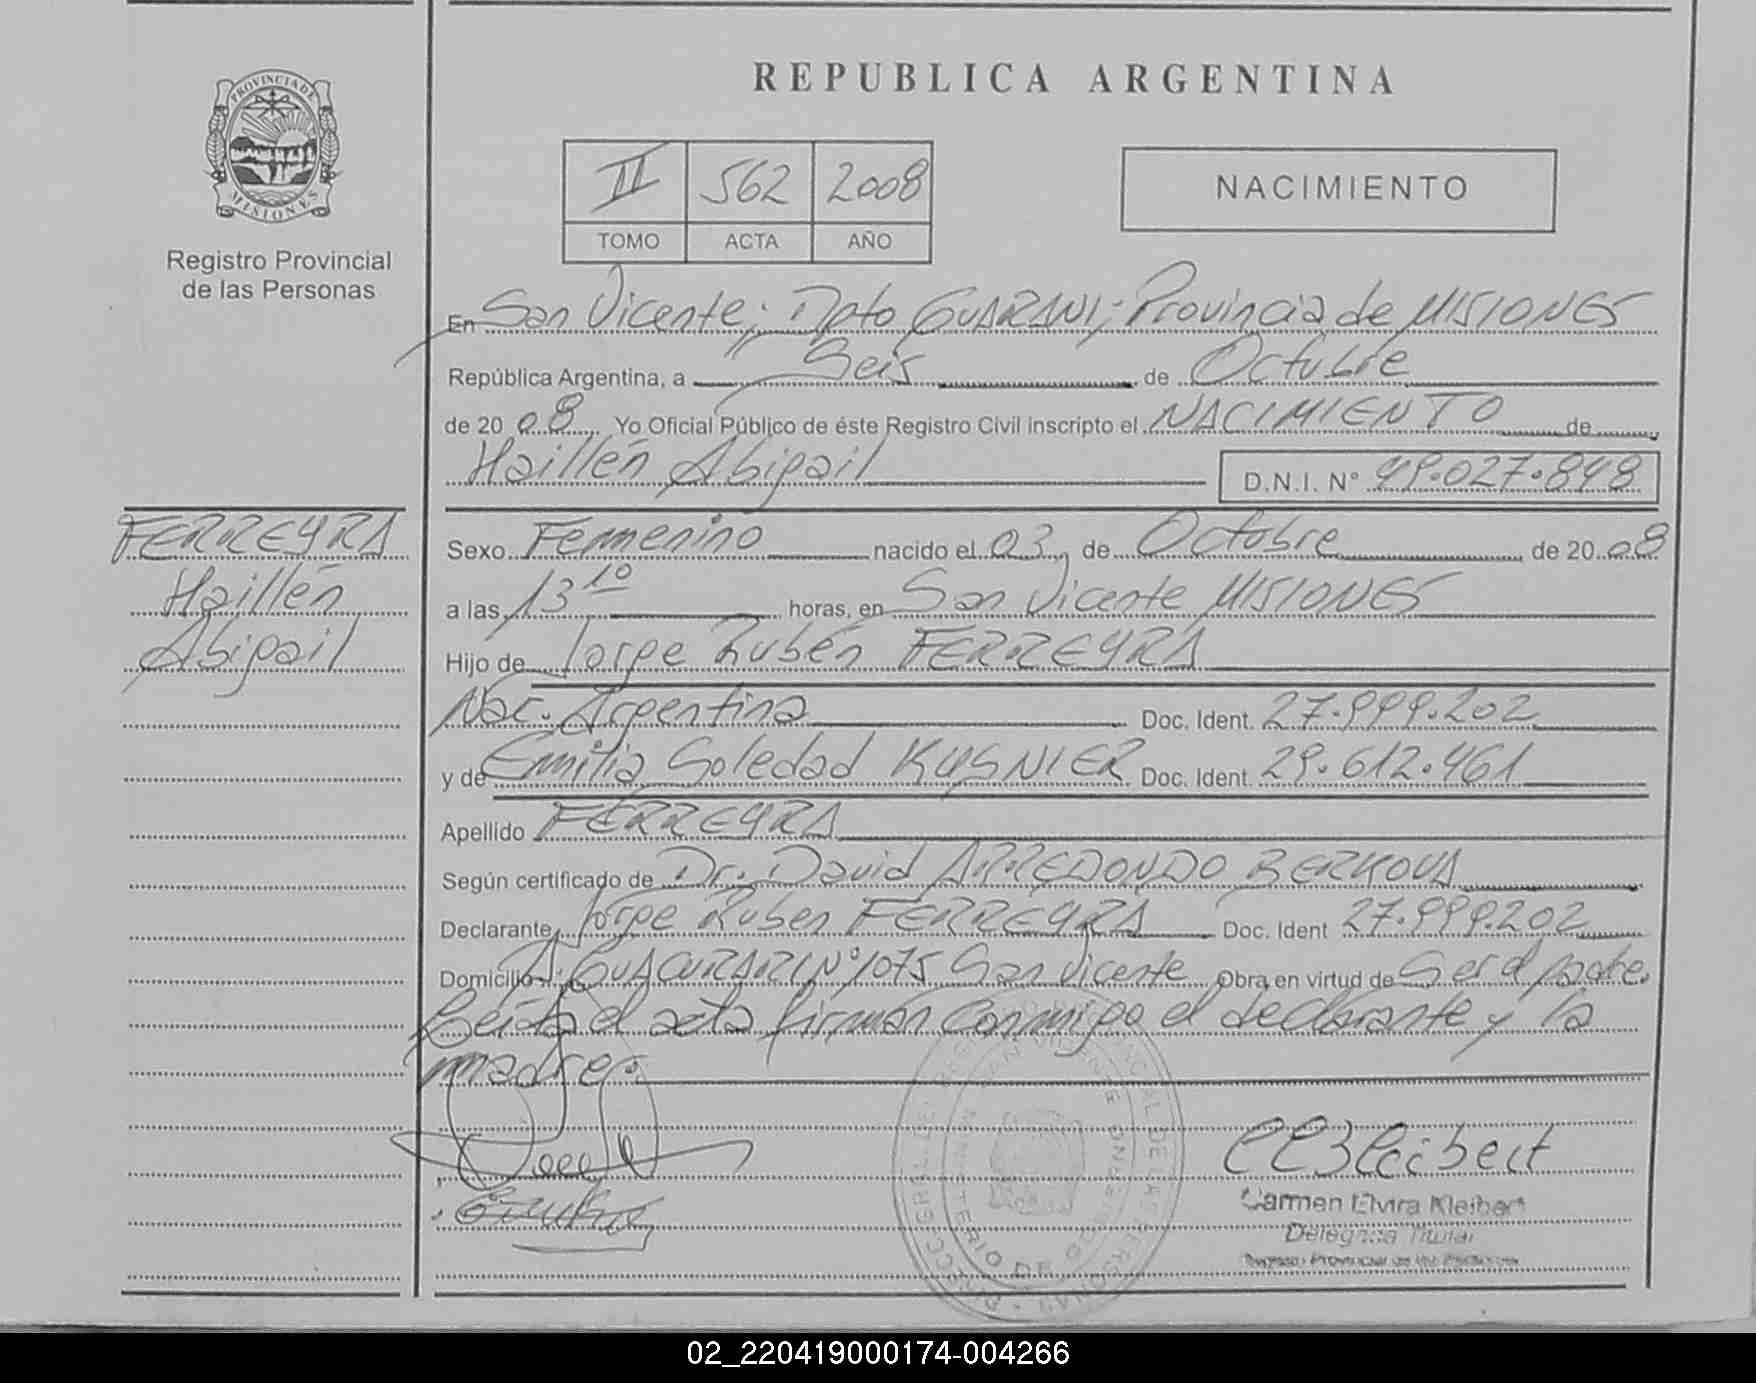 PROVINCIA DE
MISIONES
Registro Provincial
de las Personas
FERREYRA
Haillén
Abigail
REPUBLICA ARGENTINA
II 562 2008
TOMO ACTA AÑO
NACIMIENTO
En San Vicente; Dpto GUARANI; Provincia de MISIONES
República Argentina, a Seis de Octubre
de 20 08 Yo Oficial Público de éste Registro Civil inscripto el NACIMIENTO de
Haillén Abigail D.N.I. N° 49.027.848
Sexo Femenino nacido el 03 de Octubre de 20 08
a las 13 10 horas, en San Vicente MISIONES
Hijo de Jorge Rubén FERREYRA
Nac. Argentina Doc. Ident. 27.999.202
y de Emilia Soledad KUSNIER Doc. Ident. 29.612.461
Apellido FERREYRA
Según certificado de Dr. David ARREDONDO BERKOVA
Declarante Jorge Ruben FERREYRA Doc. Ident 27.999.202
Domicilio A. GUACURARI N° 1075 San Vicente Obra en virtud de Ser el padre.
Leída el acta firman conmigo el declarante y la
madre.
CEKleibert
Carmen Elvira Kleibert
Delegada Titular
Registro Provincial de las Personas
02_220419000174-004266